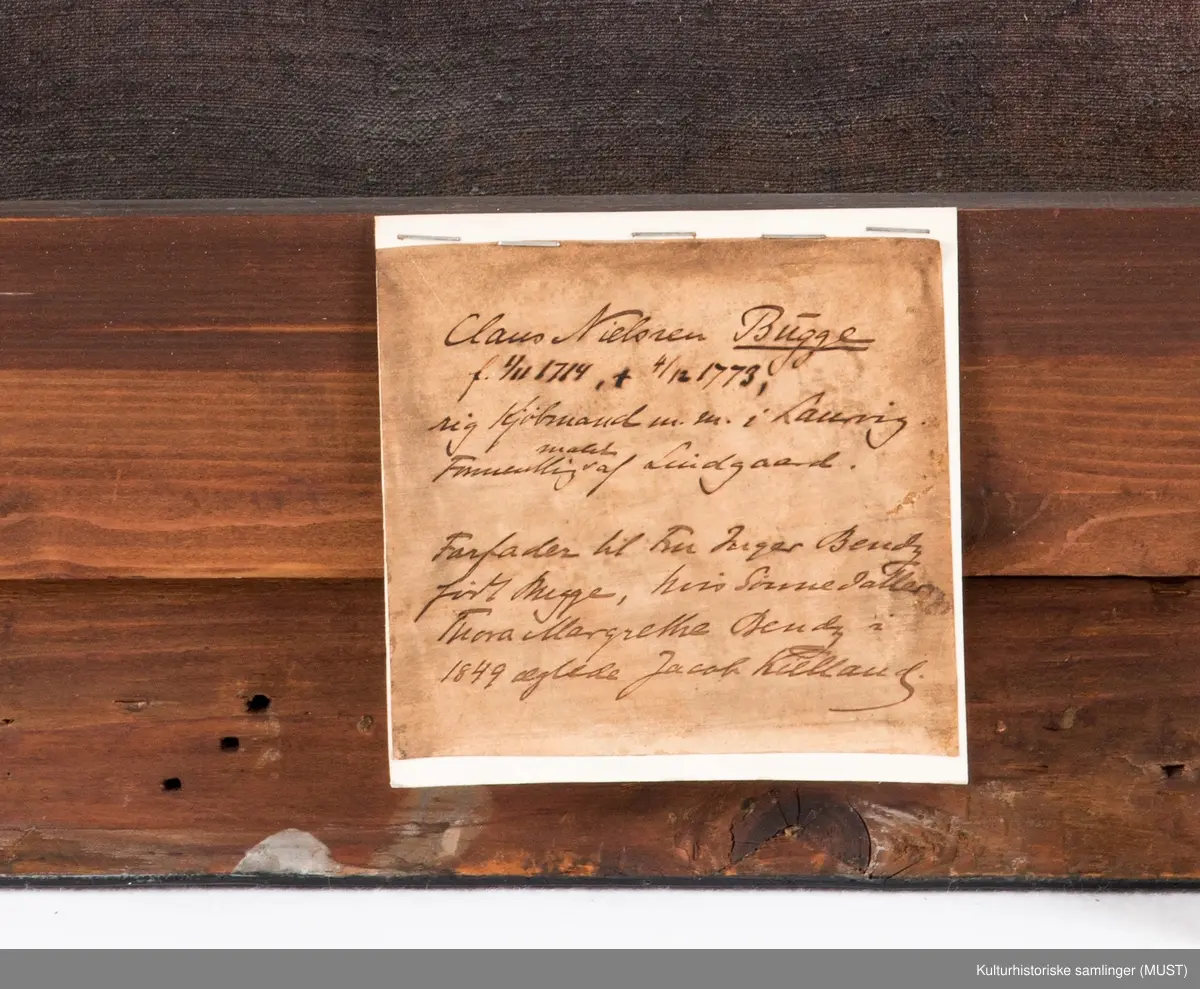 Claus Nielsen Bugge
f. 1/11 1714, + 4/12 1773,
rig Kjøbmand m. m. i Laurvig.
malet
Formentlig af Lindgaard.
Farfader til Fru Inger Bendz
født Bugge, hvis Sønnedatter
Thora Margrethe Bendz i
1849 ægtede Jacob Kielland.
Kulturhistoriske samlinger (MUST)